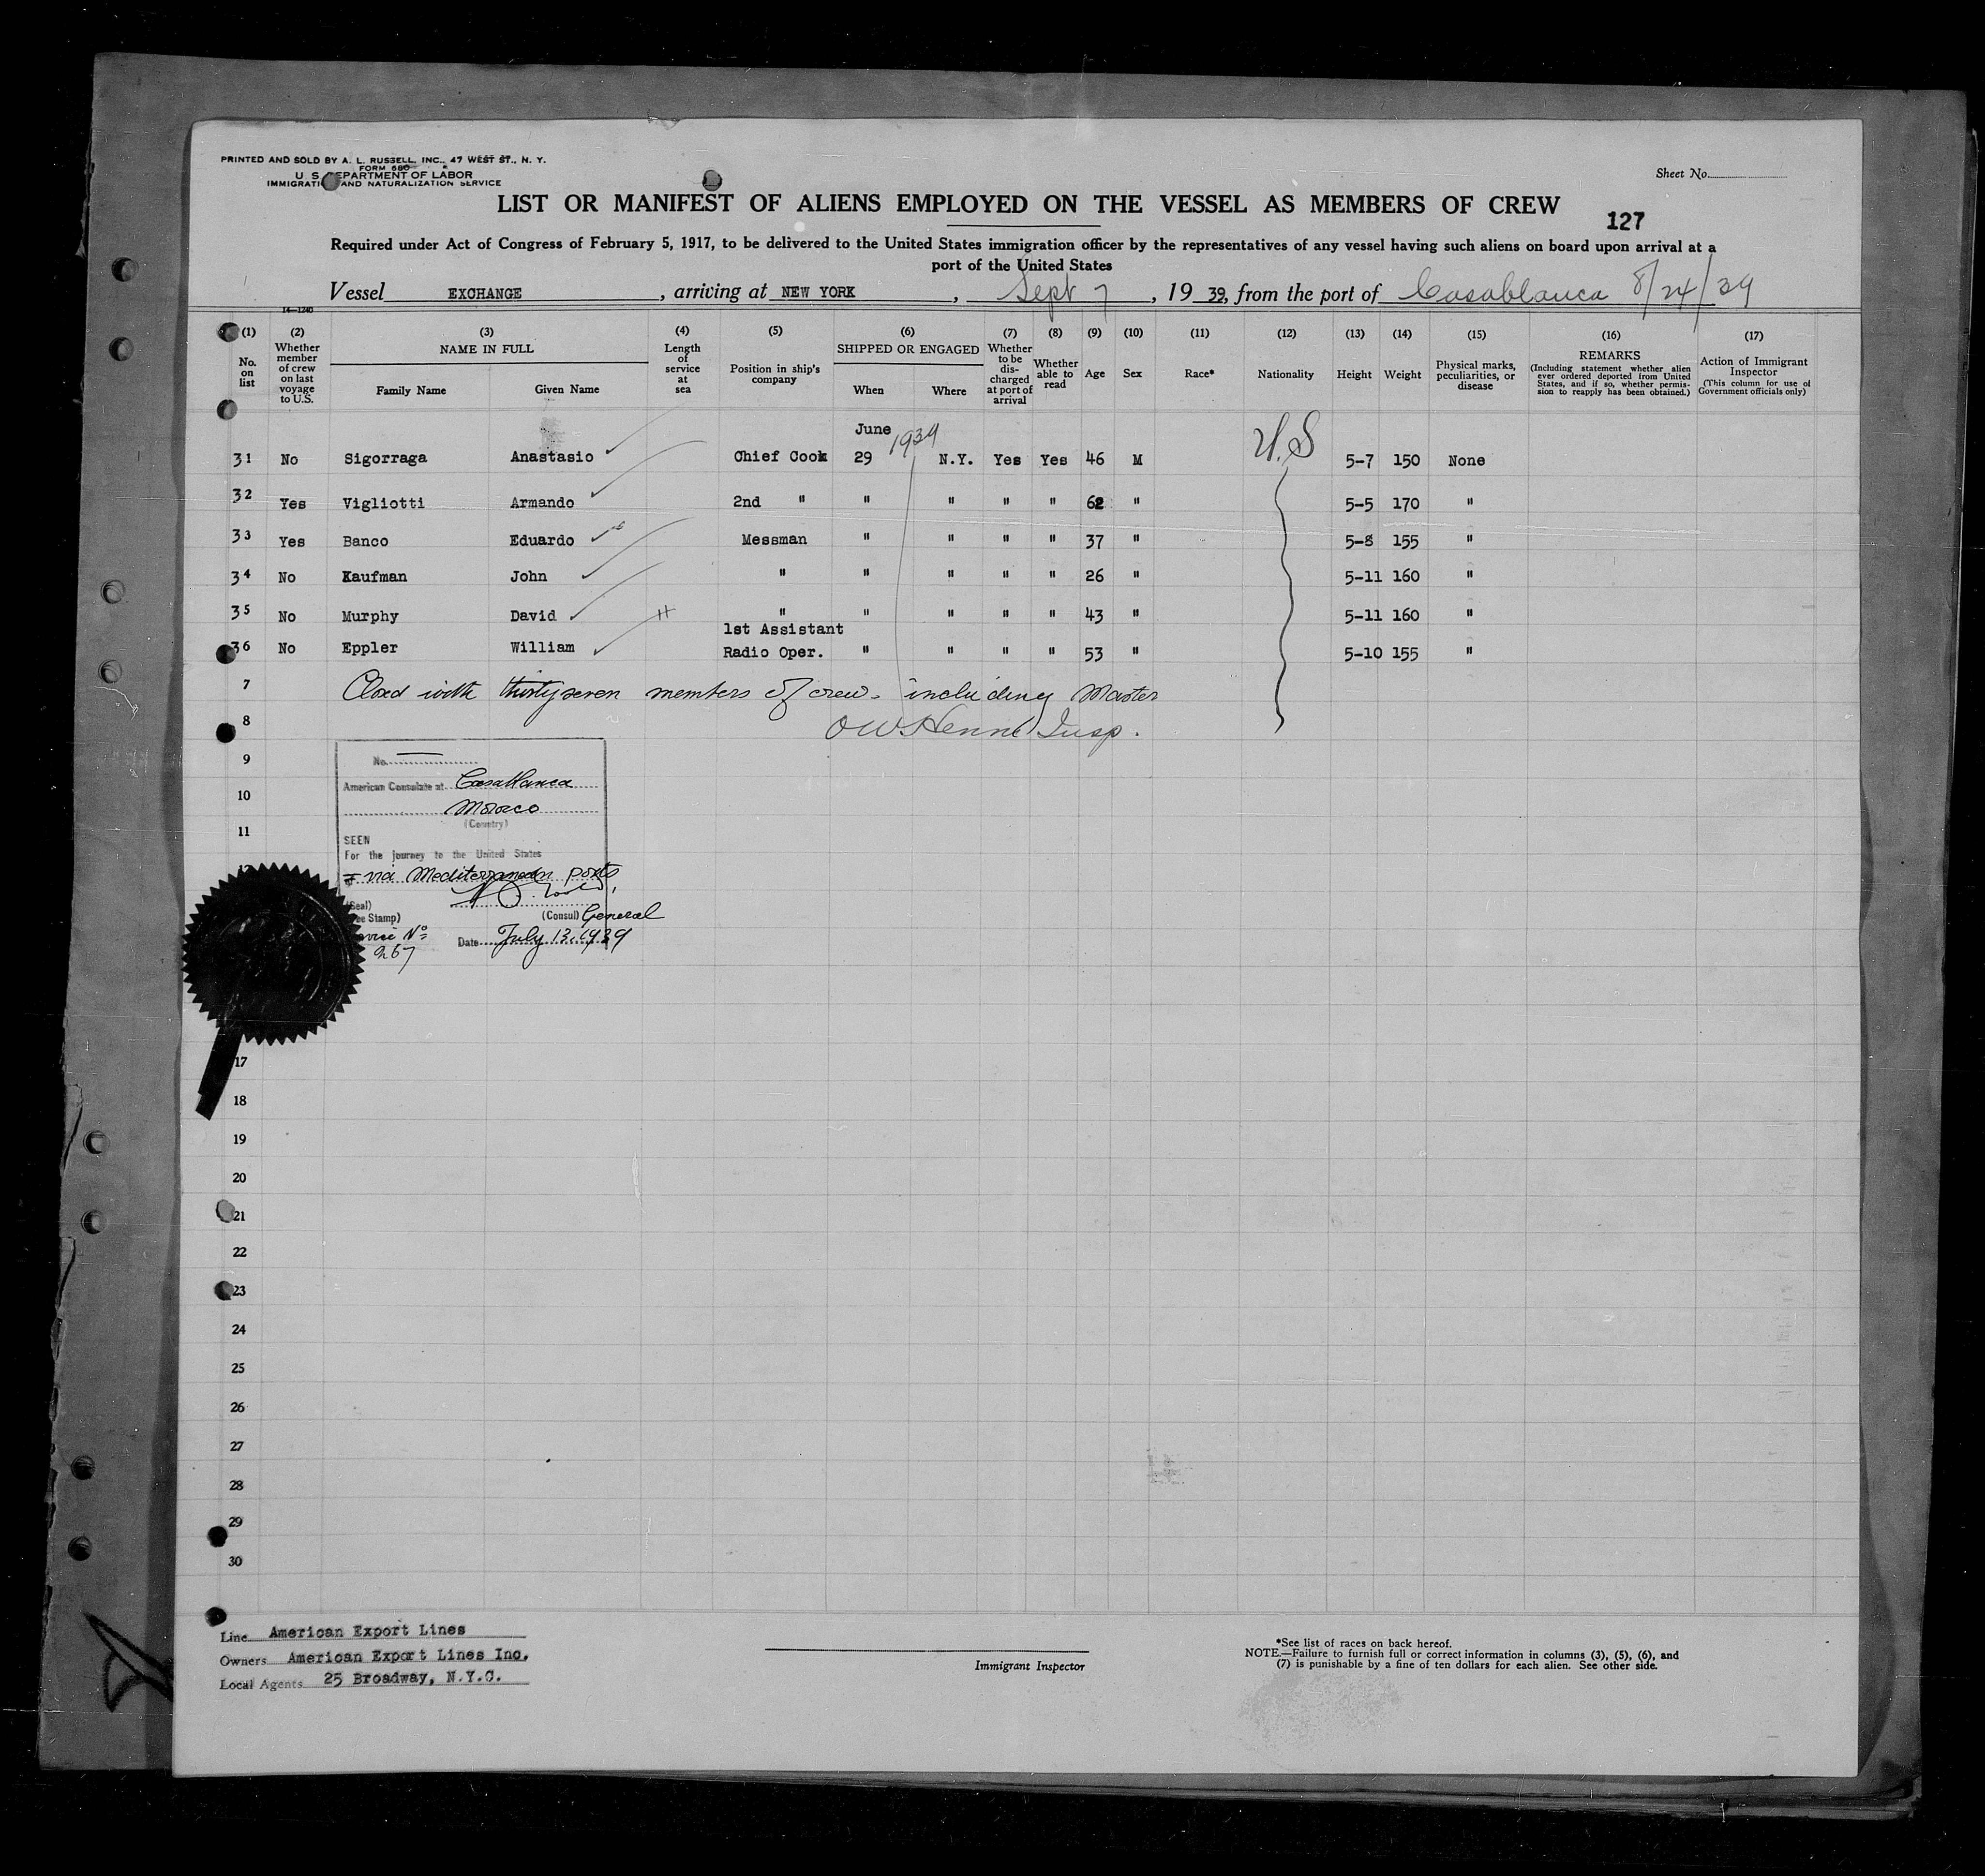 PRINTED AND SOLD BY A. L. RUSSELL, INC., 47 WEST ST., N. Y.
FORM 680
U. S. DEPARTMENT OF LABOR
IMMIGRATION AND NATURALIZATION SERVICE
Sheet No.
LIST OR MANIFEST OF ALIENS EMPLOYED ON THE VESSEL AS MEMBERS OF CREW
127
Required under Act of Congress of February 5, 1917, to be delivered to the United States immigration officer by the representatives of any vessel having such aliens on board upon arrival at a
port of the United States
Vessel EXCHANGE, arriving at NEW YORK, Sept 7, 19 39, from the port of Casablanca 8/24/39
14—1240
(1) No. on list
(2) Whether member of crew on last voyage to U.S.
(3) NAME IN FULL
Family Name Given Name
(4) Length of service at sea
(5) Position in ship's company
(6) SHIPPED OR ENGAGED
When Where
(7) Whether to be discharged at port of arrival
(8) Whether able to read
(9) Age
(10) Sex
(11) Race*
(12) Nationality
(13) Height
(14) Weight
(15) Physical marks, peculiarities, or disease
(16) REMARKS
(Including statement whether alien ever ordered deported from United States, and if so, whether permission to reapply has been obtained.)
(17) Action of Immigrant Inspector
(This column for use of Government officials only)
June 1939
31 No Sigorraga Anastasio Chief Cook 29 N.Y. Yes Yes 46 M U.S 5-7 150 None
32 Yes Vigliotti Armando 2nd " " " " " 62 " 5-5 170 "
33 Yes Banco Eduardo Messman " " " " 37 " 5-8 155 "
34 No Kaufman John " " " " " 26 " 5-11 160 "
35 No Murphy David " " " " " 43 " 5-11 160 "
1st Assistant
36 No Eppler William Radio Oper. " " " " 53 " 5-10 155 "
7 Closed with thirty seven members of crew including Master
8 OW Henne Insp.
9
10
11
17
18
19
20
21
22
23
24
25
26
27
28
29
30
No.
American Consulate at Casablanca
Morocco
(Country)
SEEN
For the journey to the United States
via Mediterranean ports
(Seal)
(Fee Stamp)
(Consul) General
Service No
267
Date July 13, 1939
Line American Export Lines
Owners American Export Lines Inc.
Local Agents 25 Broadway, N.Y.C.
Immigrant Inspector
*See list of races on back hereof.
NOTE.—Failure to furnish full or correct information in columns (3), (5), (6), and
(7) is punishable by a fine of ten dollars for each alien. See other side.